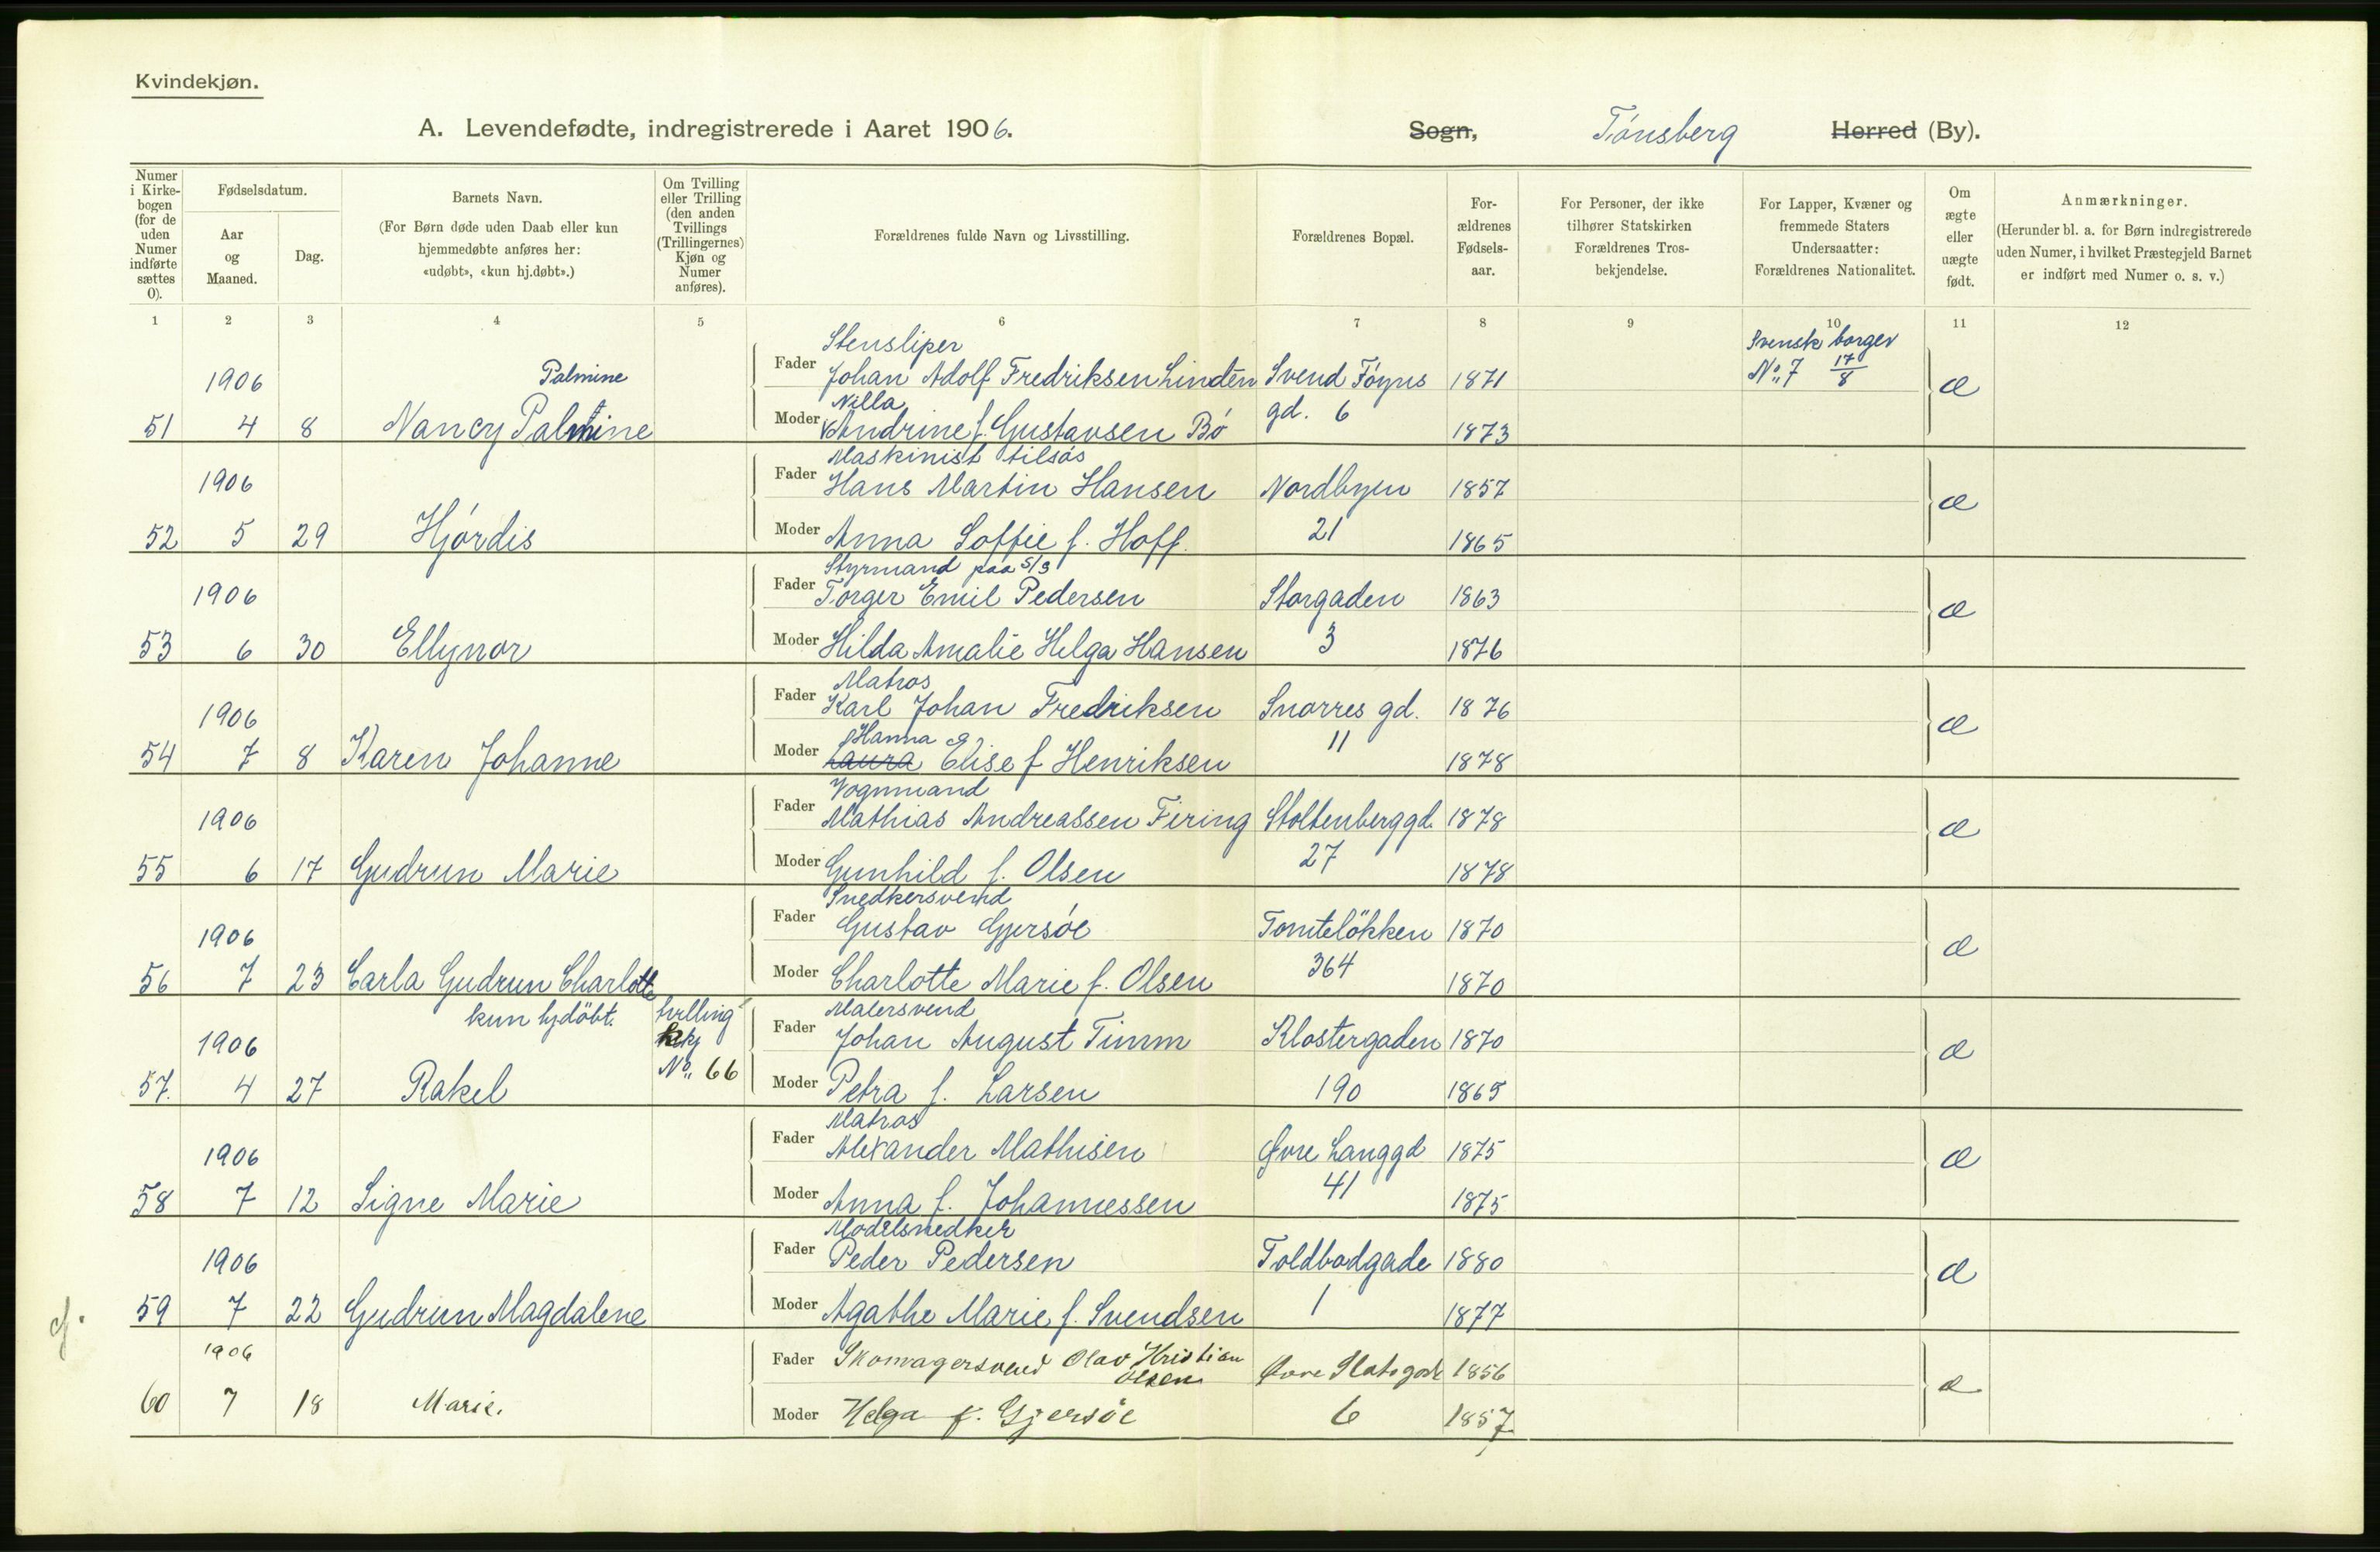 Kvindekjøn.
A. Levendefødte, indregistrerede i Aaret 1906.
Sogn, Tónsberg Herred (By).
Numer i Kirkebogen (for de uden Numer indførte sættes 0).
Fødselsdatum.
Aar og Maaned.
Dag.
Barnets Navn.
(For Børn døde uden Daab eller kun hjemmedøbte anføres her: «udøbt», «kun hj.døbt».)
Om Tvilling eller Trilling (den anden Tvillings (Trillingernes) Kjøn og Numer anføres).
Forældrenes fulde Navn og Livsstilling.
Forældrenes Bopæl.
Forældrenes Fødselsaar.
For Personer, der ikke tilhører Statskirken
Forældrenes Trosbekjendelse.
For Lapper, Kvæner og fremmede Staters Undersaatter:
Forældrenes Nationalitet.
Om ægte eller uægte født.
Anmærkninger.
(Herunder bl. a. for Børn indregistrerede uden Numer, i hvilket Præstegjeld Barnet er indført med Numer o. s. v.)
1 2 3 4 5 6 7 8 9 10 11 12
Stensliper Svensk borger
1906 Palmine Fader Johan Adolf Fredriksen Lindén Svend Föyns 1871 No 7 17/8 æ
Nilla
51 4 8 Nancy Palmine Moder Andrine f. Gustavsen Bó gd. 6 1873
Maskinist tilsøs
1906 Fader Hans Martin Hansen Nordbyen 1857 æ
52 5 29 Hjórdis Moder Anna Soffie f. Hoff. 21 1865
Styrmand paa S/S
1906 Fader Torger Emil Pedersen Storgaden 1863 æ
53 6 30 Ellynor Moder Hilda Amalie Helga Hansen 3 1876
Matros
1906 Fader Karl Johan Fredriksen Snorres gd. 1876 æ
Hanna
54 7 8 Karen Johanne Moder Laura Elise f Henriksen 11 1878
Vognmand
1906 Fader Mathias Andreassen Firing Stoltenberggd. 1878 æ
55 6 17 Gudrun Marie Moder Gunhild f. Olsen 27 1878
Snedkersvend
1906 Fader Gustav Gjersóe Tomtelökken 1870 æ
56 7 23 Carla Gudrun Charlotte Moder Charlotte Marie f. Olsen 364 1870
kun hjdöbt. tvilling Malersvend
1906 Fader Johan August Timm Klostergaden 1870 æ
57. 4 27 Rakel No 66 Moder Petra f. Larsen 190 1865
Matros
1906 Fader Alexander Mathisen Øvre Langgd 1875 æ
58 7 12 Signe Marie Moder Anna f. Johannessen 41 1875
Modelsnedker
1906 Fader Peder Pedersen Toldbodgade 1880 æ
59 7 22 Gudrun Magdalene Moder Agathe Marie f. Svendsen 1 1877
1906 Fader Skomagersvend Olav Kristian Olsen 1856 æ
60 7 18 Marie. Moder Helga f. Gjersöe 6 1857